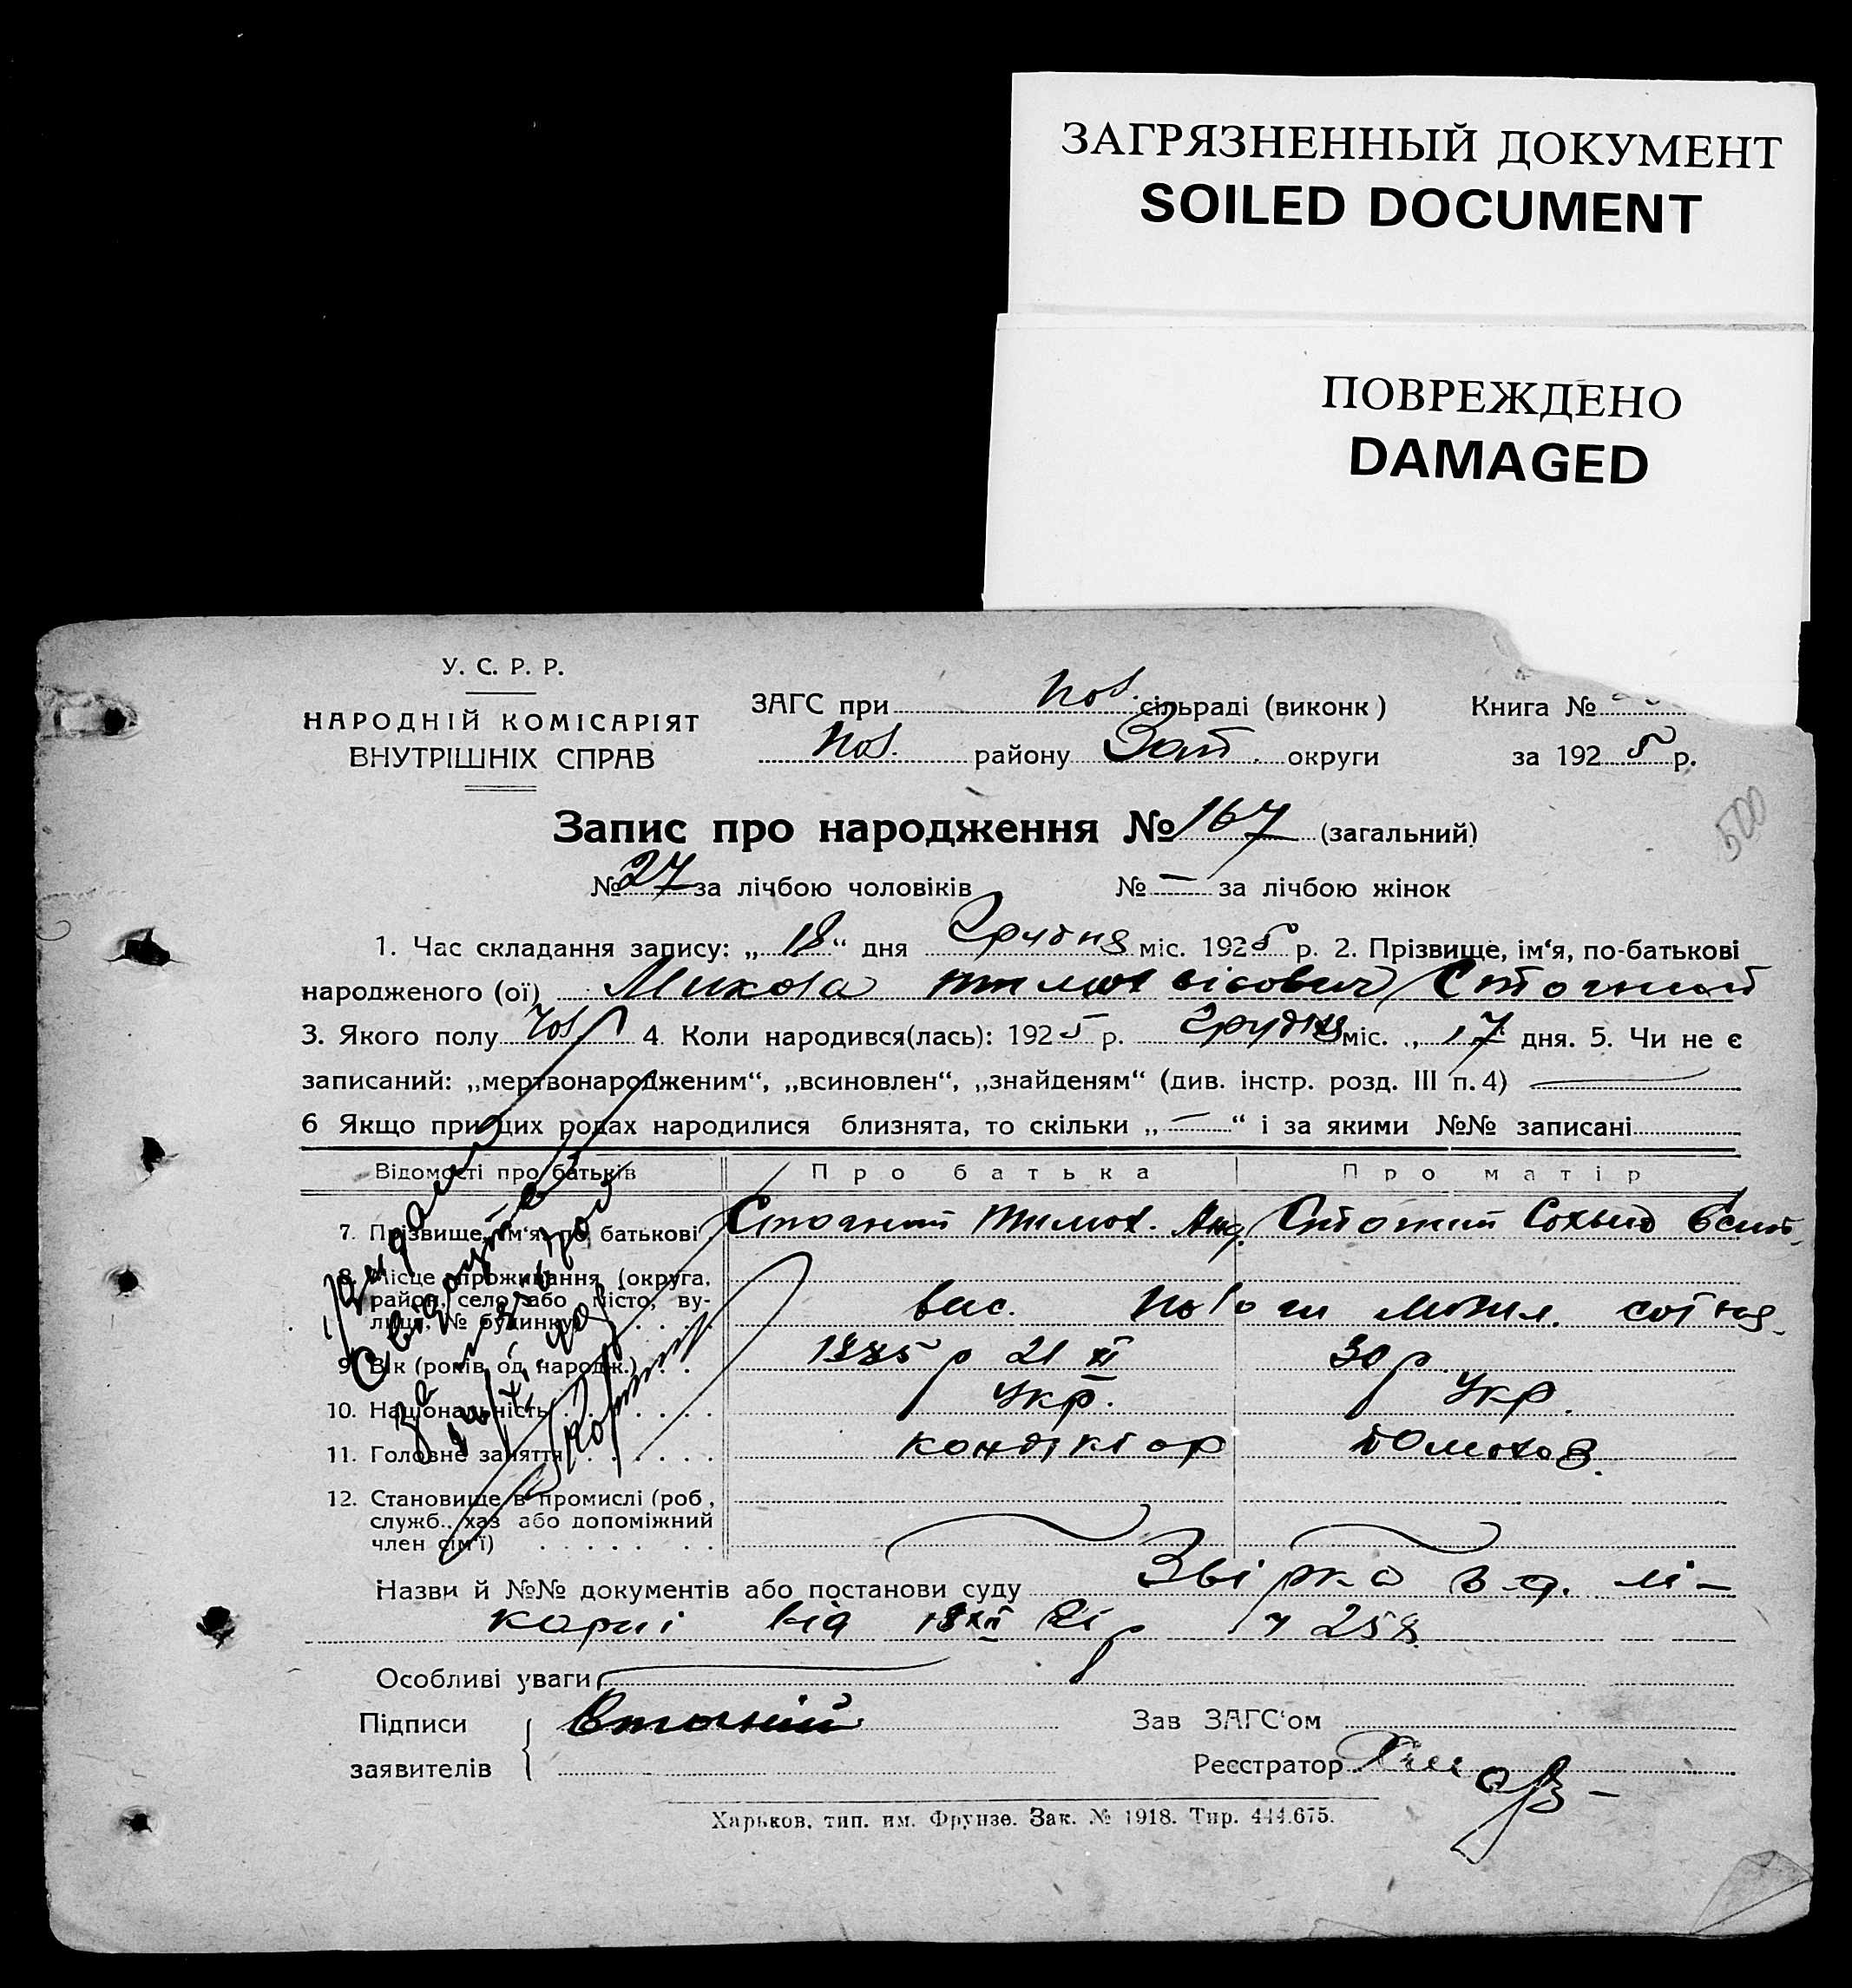 ЗАГРЯЗНЕННЫЙ ДОКУМЕНТ
SOILED DOCUMENT
ПОВРЕЖДЕНО
DAMAGED
У. С. Р. Р.
НАРОДНІЙ КОМІСАРІЯТ
ВНУТРІШНІХ СПРАВ
ЗАГС при Пол. сільраді (виконк)
Пол. району Зап. округи
Книга №
за 1925 р.
Запис про народження № 167 (загальний)
№ 27 за лічбою чоловіків № — за лічбою жінок
500
1. Час складання запису: „18“ дня Грудня міс. 1925 р. 2. Прізвище, ім‘я, по-батькові
народженого (ої) Микола Стогний
3. Якого полу чол 4. Коли народився(лась): 1925 р. Грудня міс. „17 дня. 5. Чи не є
записаний: „мертвонародженим“, „всиновлен“, „знайденям“ (див. інстр. розд. III п. 4) —
6 Якщо при цих родах народилися близнята, то скільки „—“ і за якими №№ записані
Відомості про батьків Про батька Про матір
7. Прізвище, ім‘я, по батькові Стогний Тимох. Анд. Стогний
8. Місце проживання (округа,
район, село або місто, ву-
лиця, № будинку) Пологи
9. Вік (років од народж.) 1885 р 21 XI 30 р
10. Національність Укр. Укр.
11. Головне заняття кондуктор домохаз.
12. Становище в промислі (роб,
служб., хаз або допоміжний
член сім‘ї)
Назви й №№ документів або постанови суду лі-
карні від 18 XII 25 р № 258
Особливі уваги
Підписи
заявителів
Стогний
Зав ЗАГС‘ом
Реєстратор
Харьков, тип. им. Фрунзе. Зак. № 1918. Тир. 444.675.